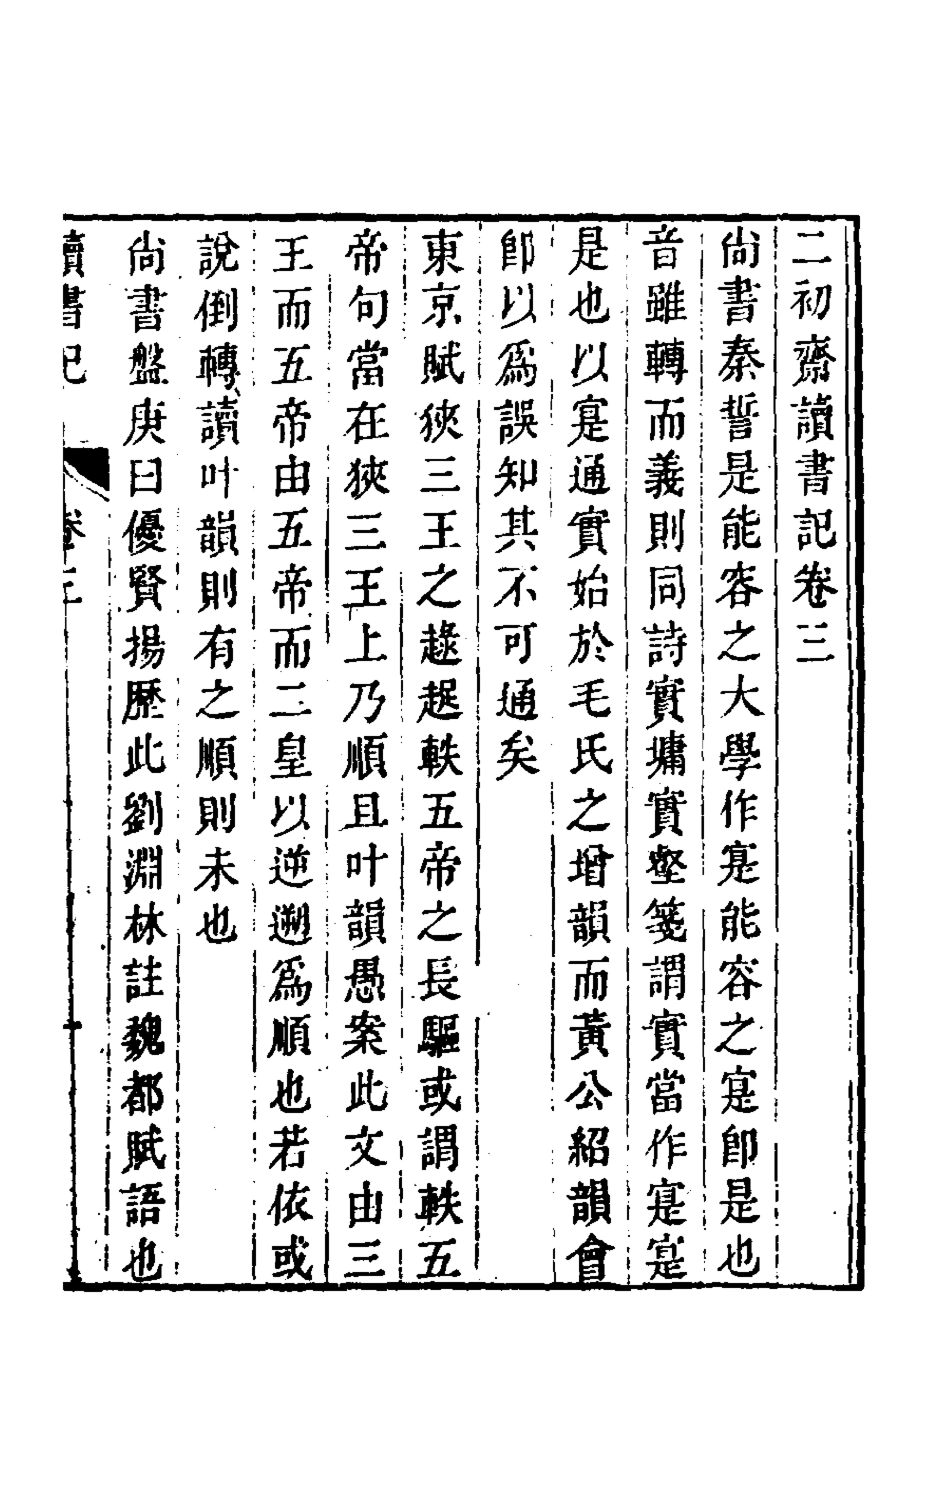 二初齋讀書記卷三
尚書秦誓是能容之大學作寔能容之寔卽是也
音雖轉而義則同詩實墉實壑箋謂實當作寔寔
是也以寔通實始於毛氏之增韻而黃公紹韻會
卽以爲誤知其不可通矣
東京賦狹三王之趢趗軼五帝之長驅或謂軼五
帝句當在狹三王上乃順且叶韻愚案此文由三
王而五帝由五帝而二皇以逆遡爲順也若依或
說倒轉讀叶韻則有之順則未也
尚書盤庚曰優賢揚歷此劉淵林註魏都賦語也
讀書記 卷三